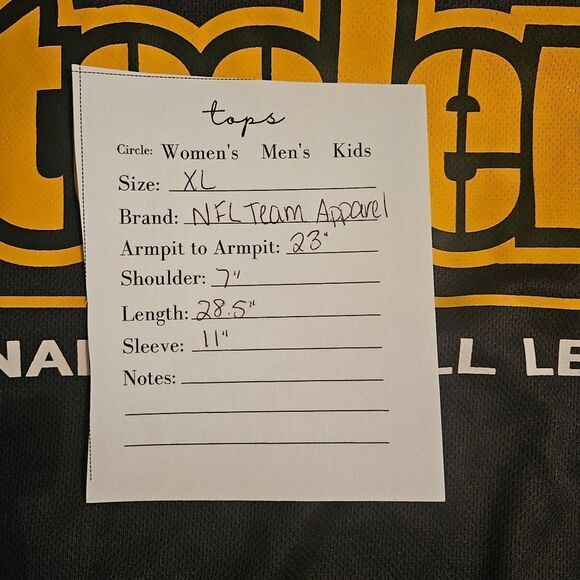 teeler
tops
Circle: Women's Men's Kids
Size: XL
Brand: NFL Team Apparel
Armpit to Armpit: 23"
Shoulder: 7"
Length: 28.5"
Sleeve: 11"
Notes:
NA LL LE